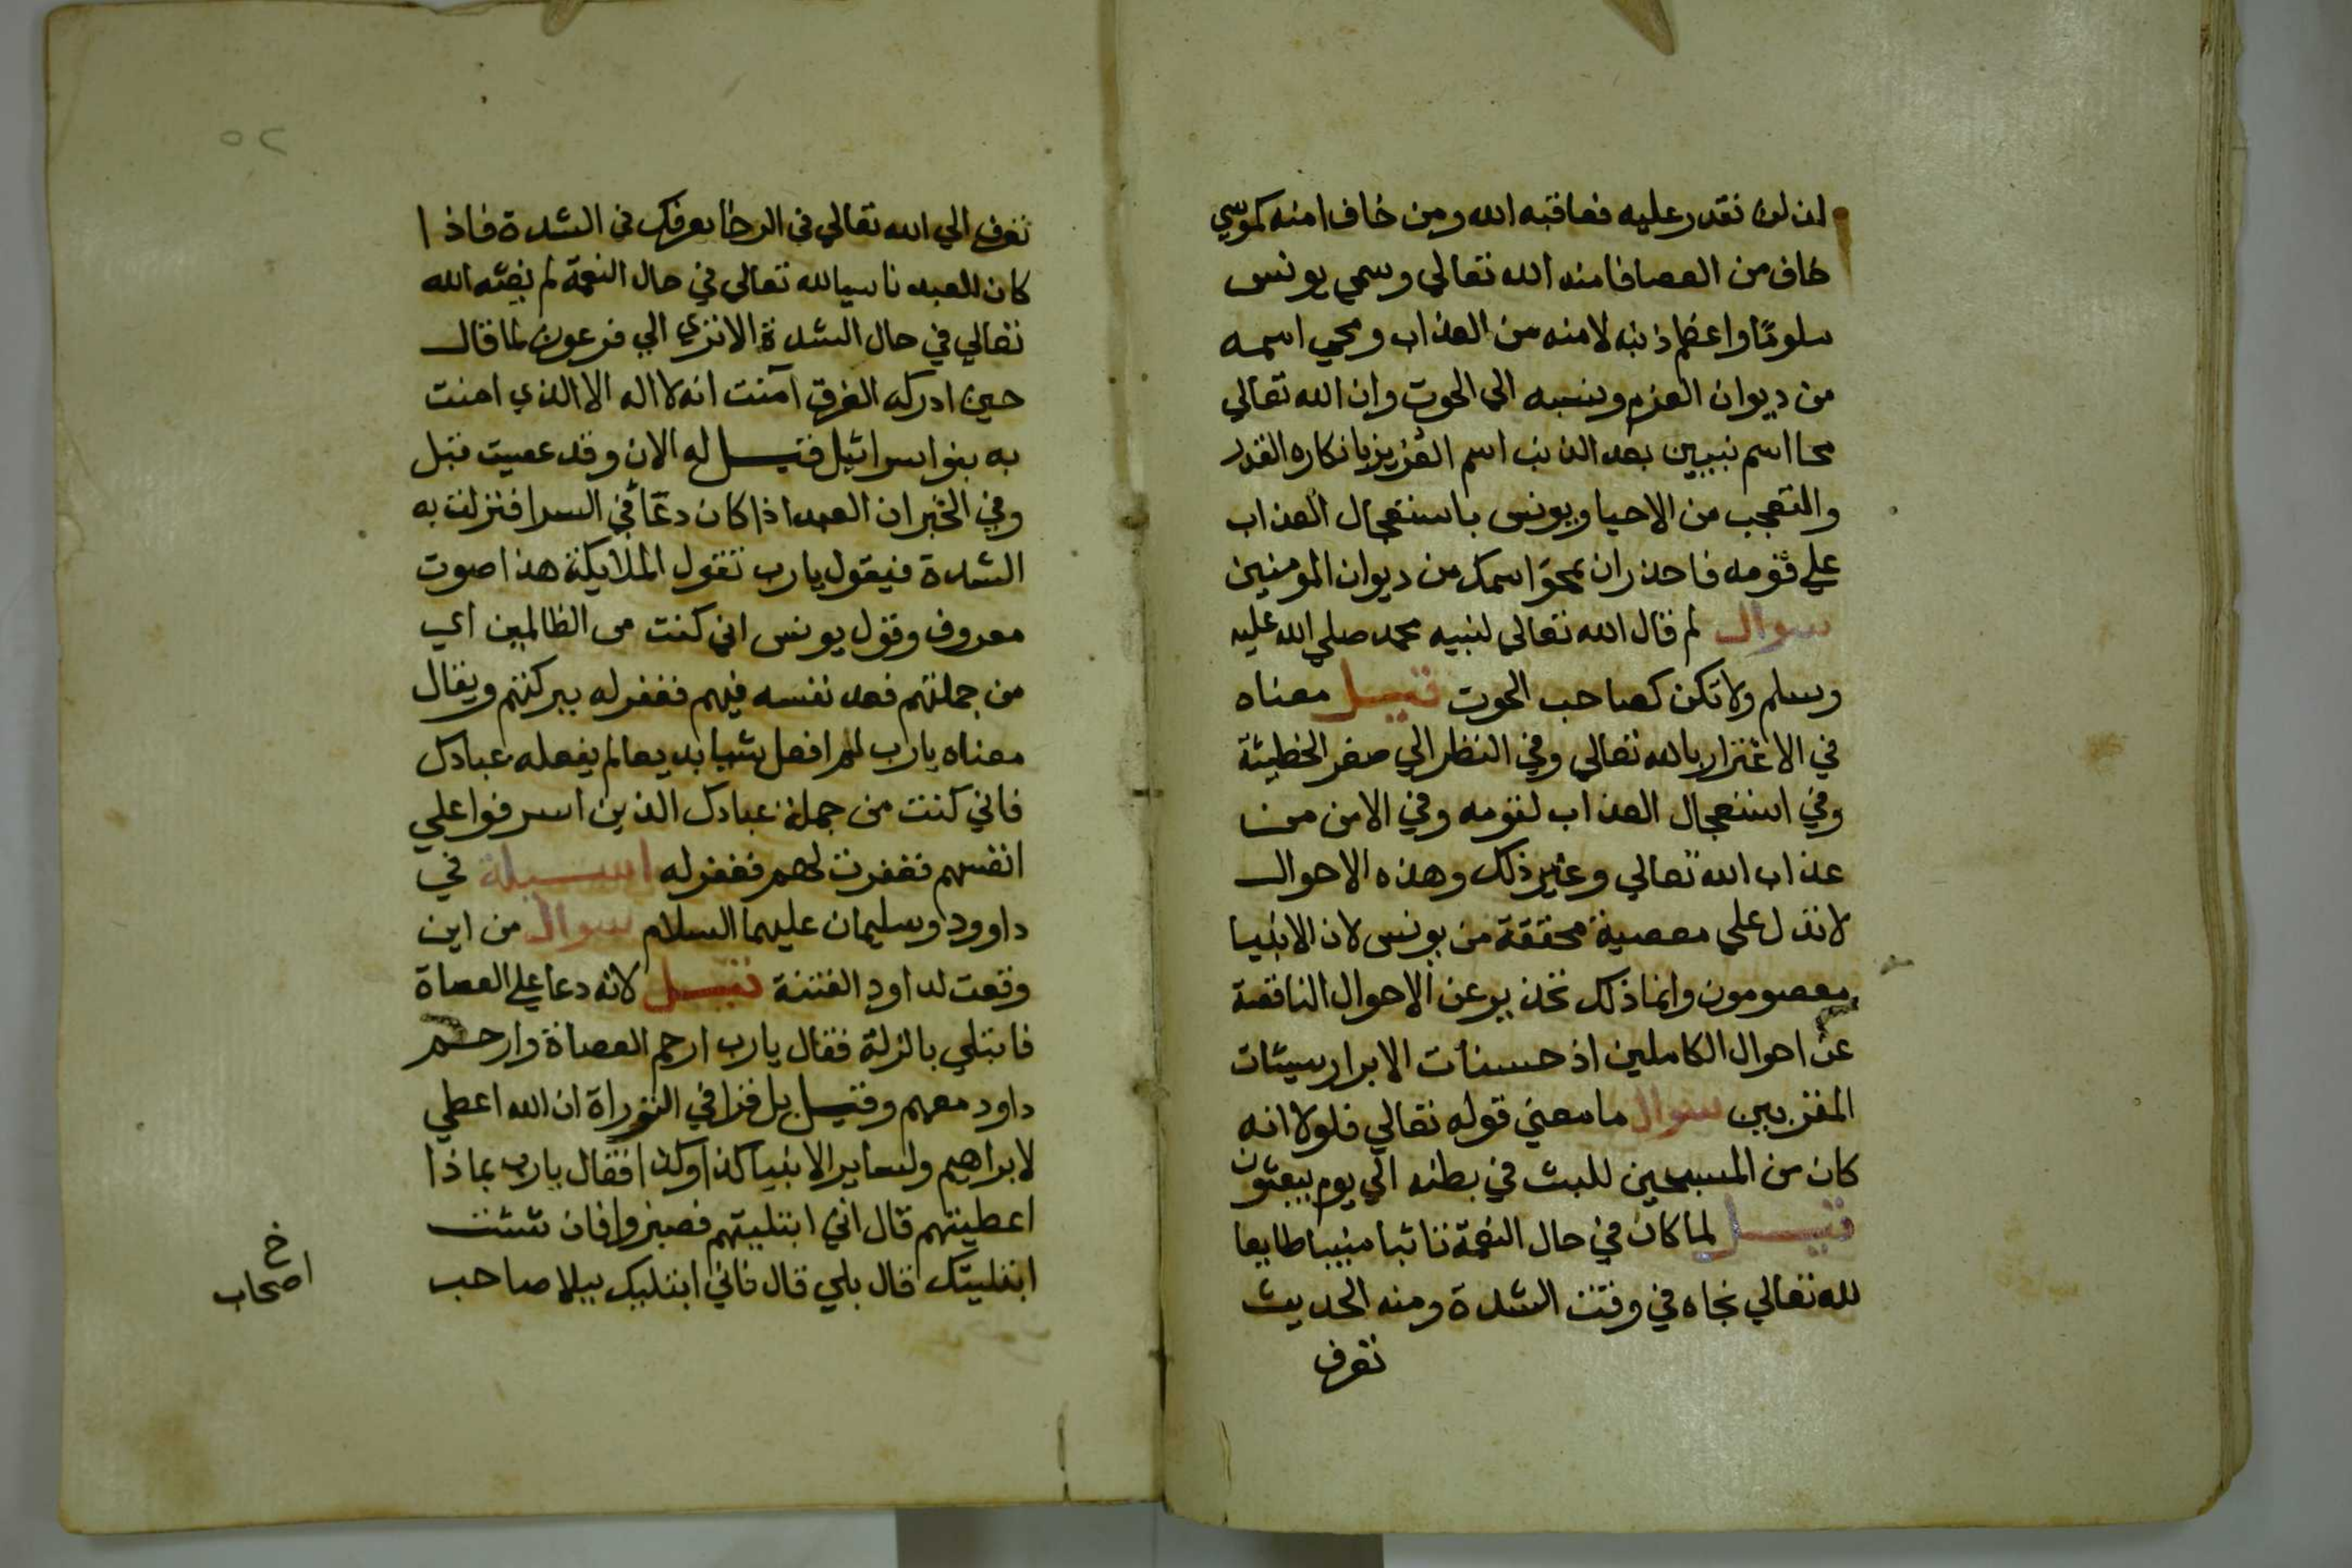 ان لن نقدر عليه فعاقبه الله ومن خاف امنه كموسي
خاف من العصا فامنه الله تعالي وسمي يونس
ملوما واعظم ذنبه لامنه من العذاب ومحي اسمه
من ديوان العزم ونسبه الي الحوت وان الله تعالي
محا اسم نبيين بعد الذنب اسم العزيز بانكاره القدر
والتعجب من الاحيا ويونس باستعجال العذاب
علي قومه فاحذر ان يمحو اسمك من ديوان المومنين
سوال لم قال الله تعالي لنبيه محمد صلي الله عليه
وسلم ولا تكن كصاحب الحوت قيل معناه
في الاغترار بالله تعالي وفي النظر الي صغر الخطيئة
وفي استعجال العذاب لقومه وفي الامن من
عذاب الله تعالي وغير ذلك وهذه الاحوال
لا تدل علي معصية محققة من يونس لان الانبيا
معصومون وانما ذلك تحذير عن الاحوال الناقصة
عن احوال الكاملين اذ حسنات الابرار سيئات
المقربين سوال ما معني قوله تعالي فلولا انه
كان من المسبحين للبث في بطنه الي يوم يبعثون
قيل لما كان في حال النعمة تائبا منيبا طايعا
لله تعالي نجاه في وقت الشدة ومنه الحديث
تعرف
٥٢
تعرف الي الله تعالي في الرخا يعرفك في الشدة فاذا
كان للعبد ناسيا لله تعالي في حال النعمة لم يغثه الله
تعالي في حال الشدة الا تري الي فرعون لما قال
حين ادركه الغرق آمنت انه لا اله الا الذي امنت
به بنوا سرائيل فقيل له الان وقد عصيت قبل
وفي الخبر ان العبد اذا كان دعا في السرا فنزلت به
الشدة فيقول يا رب تقول الملايكة هذا صوت
معروف وقول يونس اني كنت من الظالمين اي
من جملتهم فعد نفسه فيهم فغفر له ببركتهم ويقال
معناه يا رب لم افعل شيا بديعا لم يفعله عبادك
فاني كنت من جملة عبادك الذين اسرفوا علي
انفسهم فغفرت لهم فغفر له اسيلة في
داوود وسليمان عليهما السلام سوال من اين
وقعت لداود الفتنة قيل لانه دعا علي العصاة
فابتلي بالزلة فقال يا رب ارحم العصاة وارحم
داود معهم وقيل بل قرا في التوراة ان الله اعطي
لابراهيم ولساير الانبيا كذا وكذا فقال يا رب بماذا
اعطيتهم قال اني ابتليتهم فصبروا فان شئت
ابتليتك قال بلي قال فاني ابتليك ببلا صاحب
خ
اصحاب